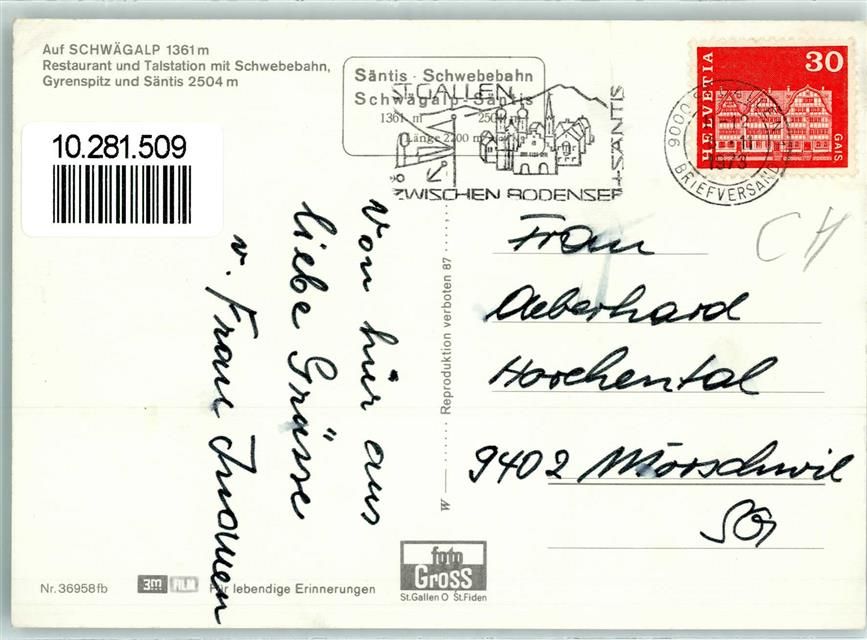 Auf SCHWÄGALP 1361 m
Restaurant und Talstation mit Schwebebahn,
Gyrenspitz und Säntis 2504 m
10.281.509
Säntis - Schwebebahn
Schwägalp-Säntis
1361 m 2504 m
Länge 2200 m
ST. GALLEN
ZWISCHEN BODENSEE
+SÄNTIS
9000
1973
BRIEFVERSAND
HELVETIA
30
GAIS
CH
Von hier aus
liebe Grüsse
v. Frau
Frau
Aeberhard
Horchental
9402 Mörschwil
SG
W — ...... Reproduktion verboten 87 ......
Nr. 36958fb
3m FILM
Für lebendige Erinnerungen
foto
Gross
St.Gallen O St.Fiden